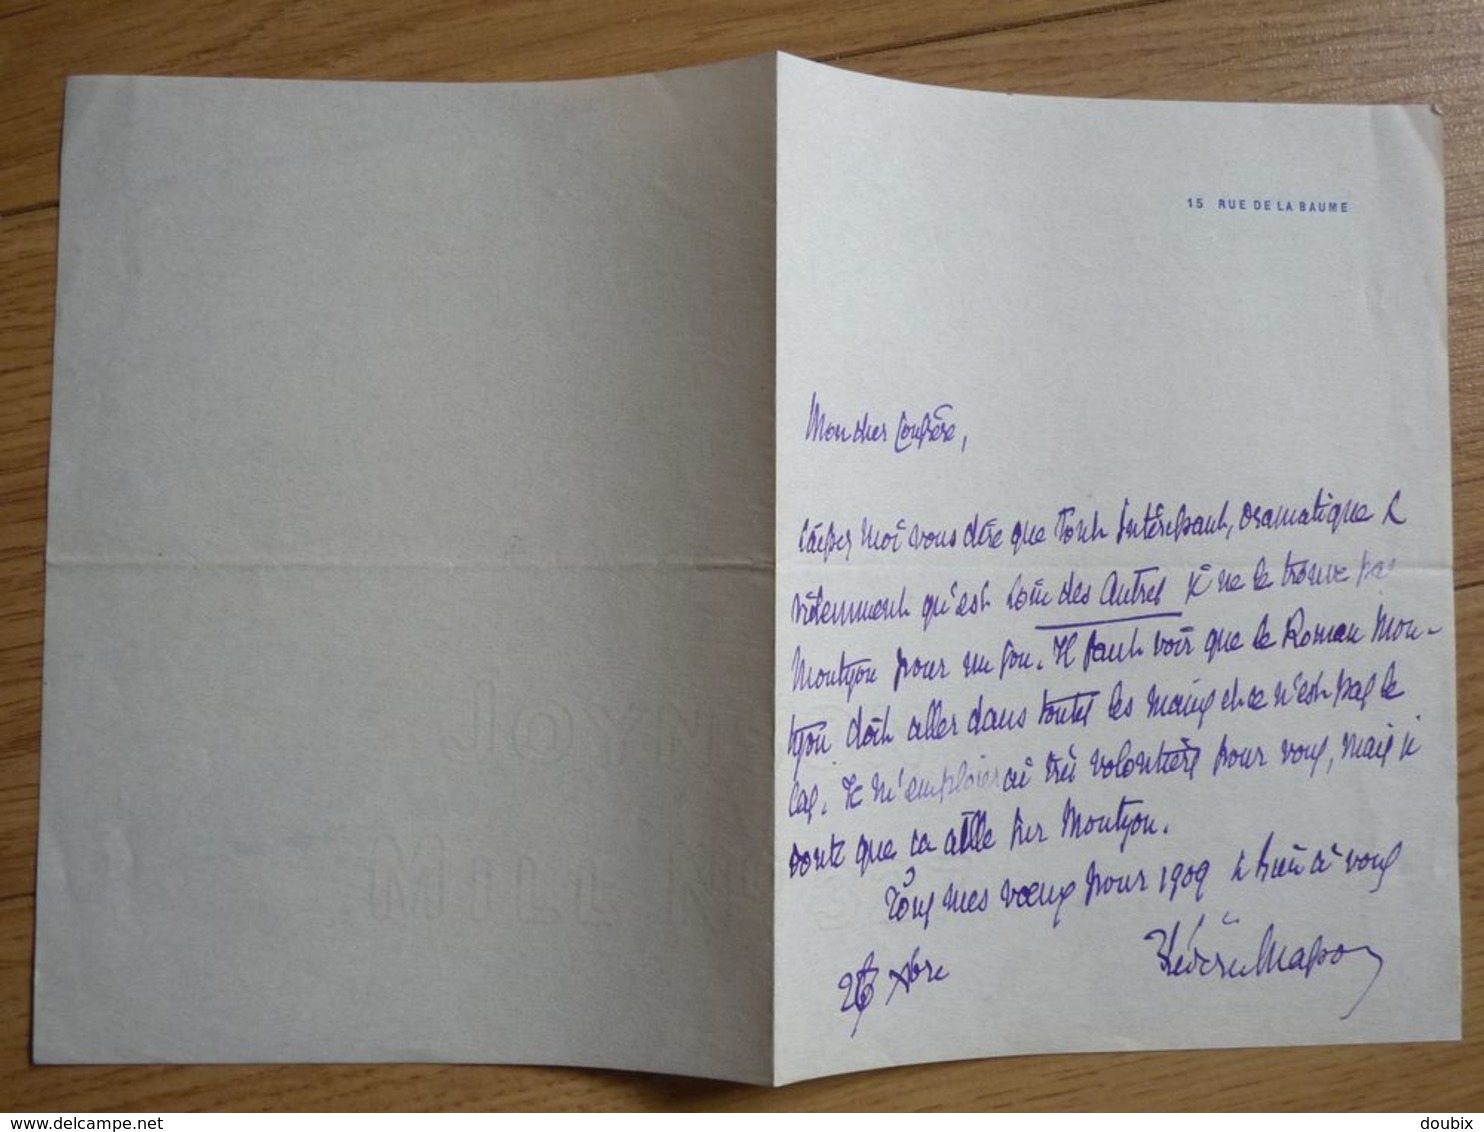 15 RUE DE LA BAUME
Mon cher Confrère,
Laissez moi vous dire que tout intéressant, dramatique &
évidemment qu'est Loin des Autres je ne le trouve pas
Montyon pour un sou. Il faut voir que le Roman Mon-
tyon doit aller dans toutes les mains et ce n'est pas le
cas. Je m'emploierai très volontiers pour vous, mais je
doute que ça aille sur Montyon.
Tous mes vœux pour 1909 & bien à vous
Frédéric Masson
26 Xbre
JOYNSON
MILL N°
delcampe.net
doubix